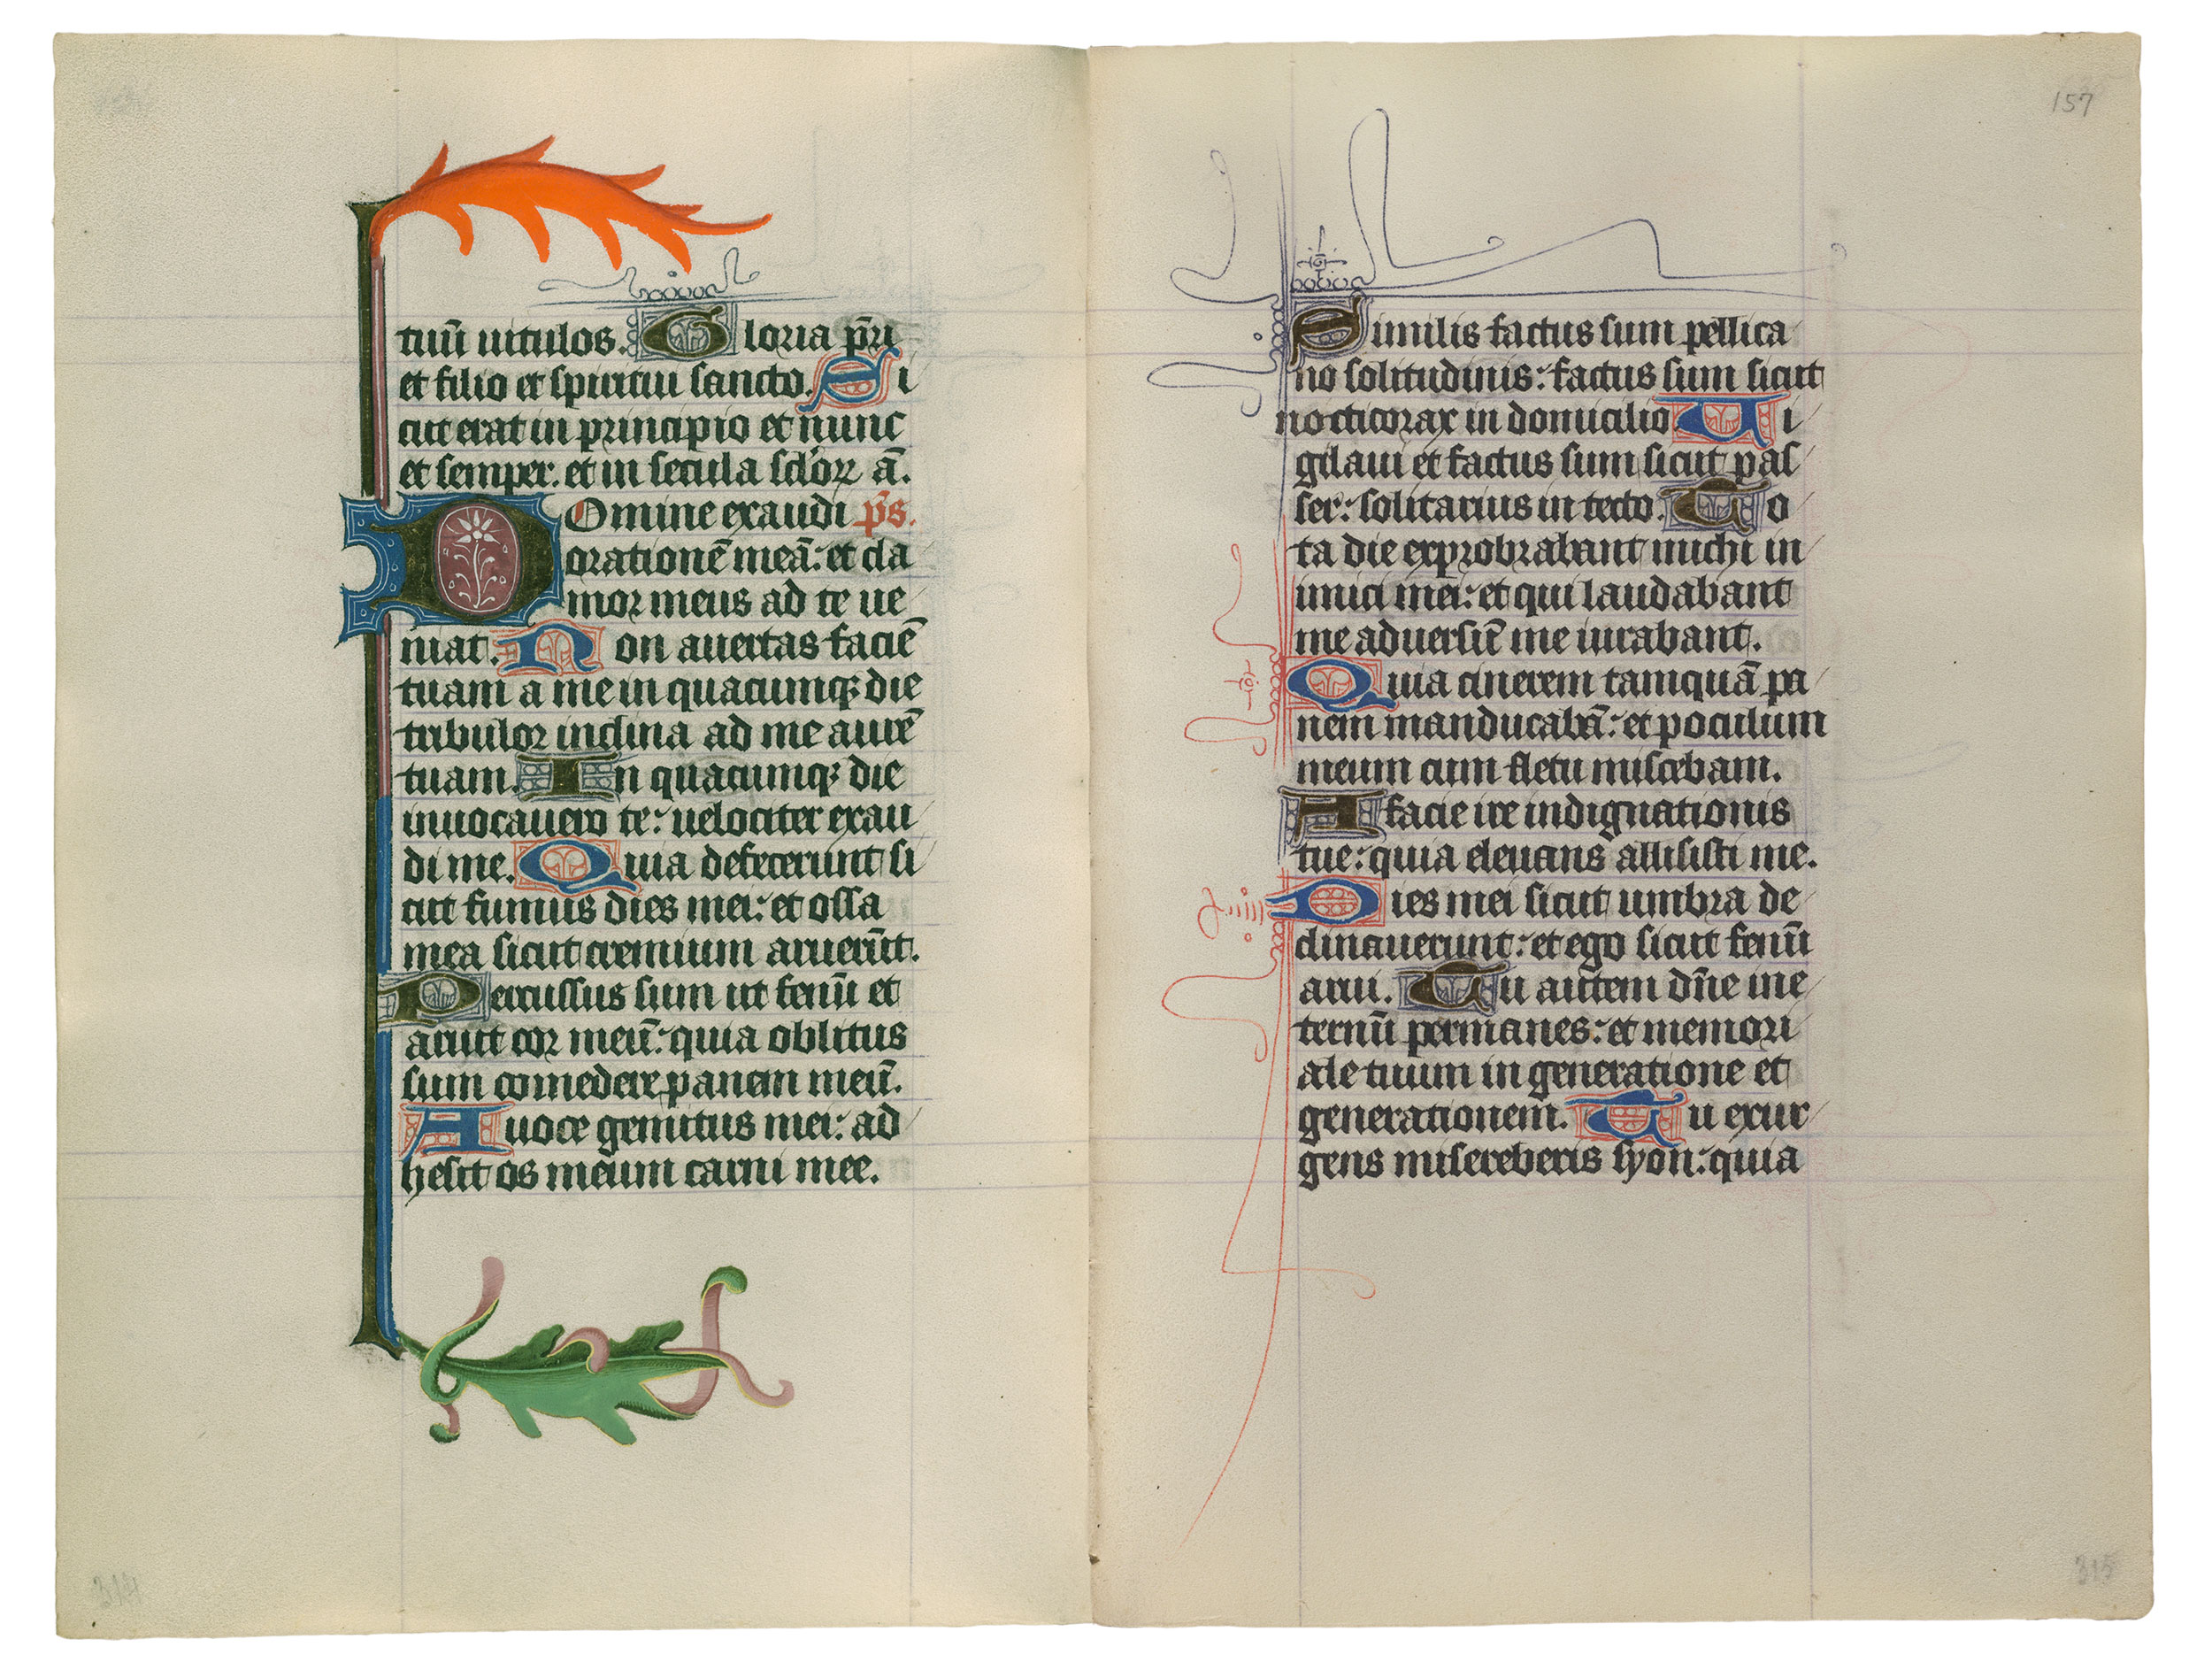 tuū uitulos. Gloria p̄ri
et filio et spiritui sancto. Si
cut erat in principio et nunc
et semper. et in secula sc̄lorꝝ ā.
Domine exaudi p̄s.
orationē meā: et cla
mor meus ad te ue
niat. Non auertas faciē
tuam a me in quacumqꝫ die
tribulor inclina ad me aurē
tuam. In quacumqꝫ die
inuocauero te: uelociter exau
di me. Quia defecerunt si
cut fumus dies mei: et ossa
mea sicut cremium aruerūt.
Percussus sum ut fenū et
aruit cor meū: quia oblitus
sum comedere panem meū.
A uoce gemitus mei: ad
hesit os meum carni mee.
314
157
Similis factus sum pellica
no solitudinis: factus sum sicut
nocticorax in domicilio Ui
gilaui et factus sum sicut pas
ser: solitarius in tecto. To
ta die exprobrabant michi in
imici mei: et qui laudabant
me aduersū me iurabant.
Quia cinerem tamquā pa
nem manducabā: et poculum
meum cum fletu miscebam.
A facie ire indignationis
tue: quia eleuans allisisti me.
Dies mei sicut umbra de
clinauerunt: et ego sicut fenū
arui. Tu autem dn̄e ine
ternū permanes: et memori
ale tuum in generatione et
generationem. Tu exur
gens misereberis syon: quia
315